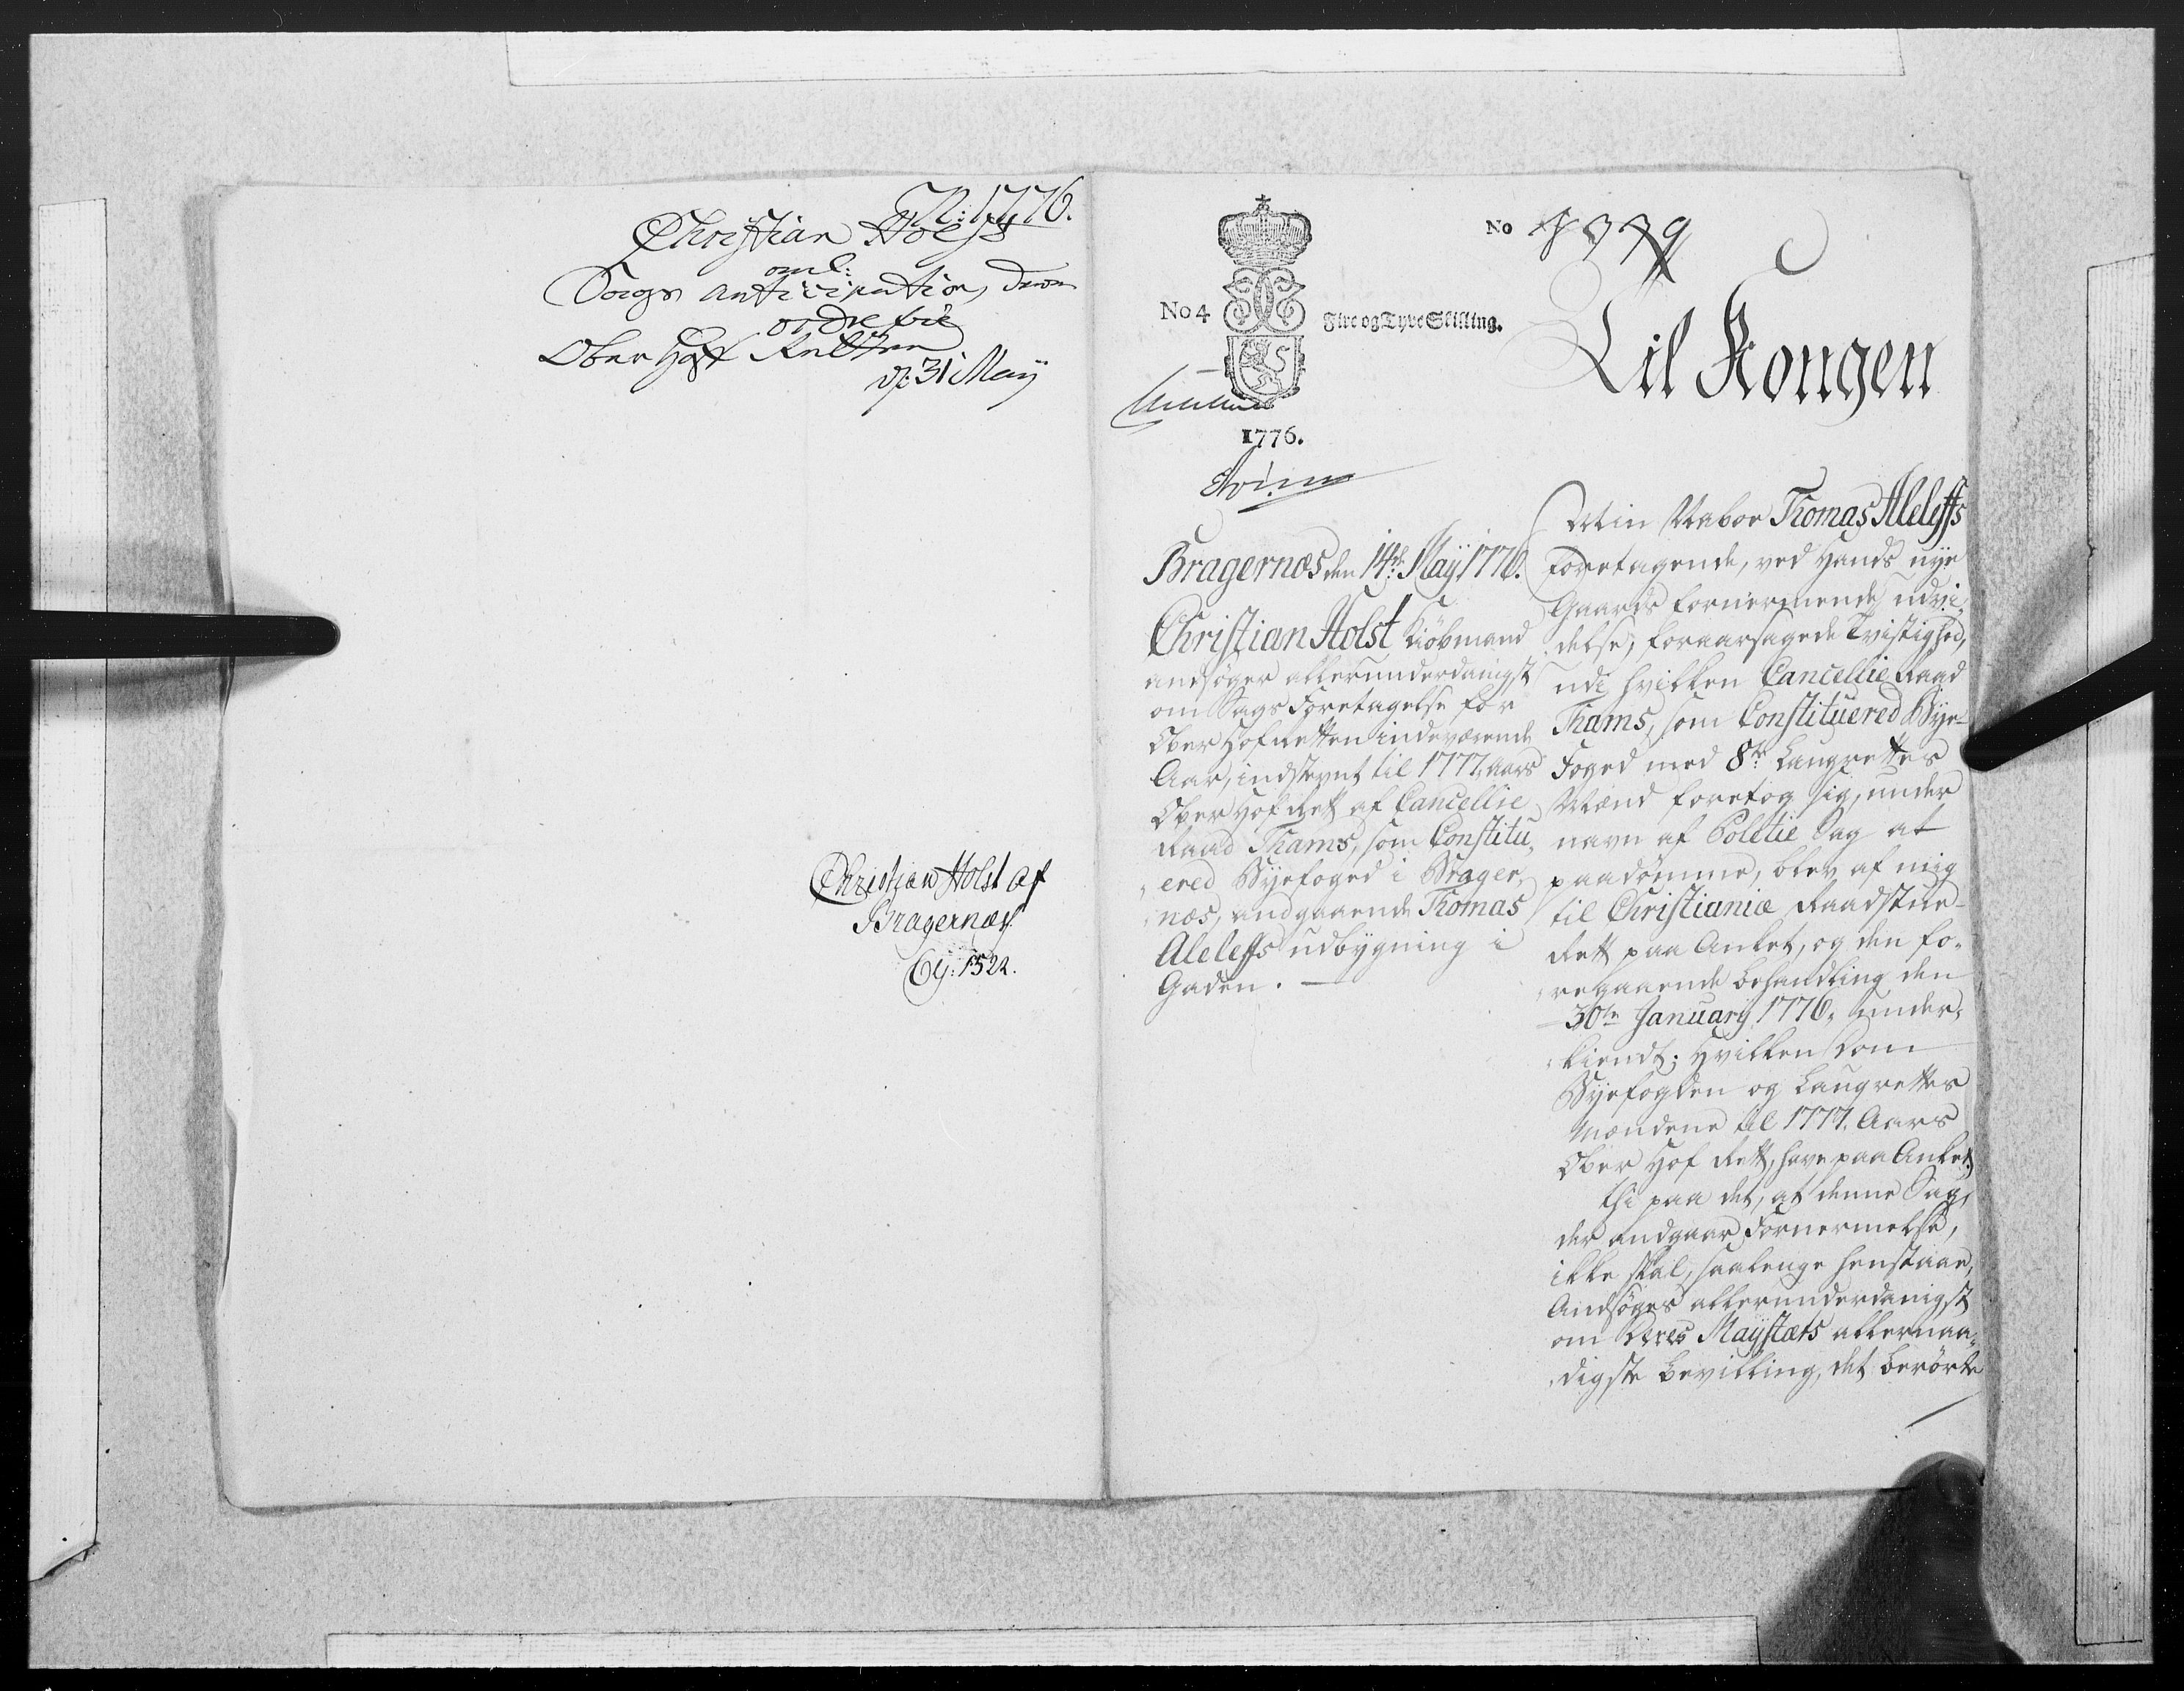 N: 1776.
Christian Holst
anl:
Sags anticipation
ordre til
Ober Hof Retten
d: 31 Maÿ
Christian Holst af
Bragernæs.
Cg: 1522.
No
No 4
Fire og Tyve Skilling.
1776.
Til Kongen
Bragernæs den 14de Maÿ 1776.
Christian Holst Kiøbmand
andsøger allerunderdanigst
om Sags Foretagelse for
Ober Hofretten indeværende
Aar, indstevnt til 1777. Aars
Ober Hof Rett af Cancellie
Raad Thams, som Constitu,
ered Byefoged i Brager,
næs, andgaaende Thomas
Aleleffs udbygning i
Gaden. —
Min Nabor Thomas Aleleffs
Foretagende, ved Hands nye
Gaards fornermende udvi,
delse, foraarsagede Tvistighed,
udi hvilken Cancellie Raad
Thams, som Constituered Bye-
Foged med 8te Laugrettes
Mænd foretog sig, under
navn af Politie Sag at
paadømme, blev af mig
til Christianiæ Raadstue-
Rett paa Anket, og den fo,
regaaende behandling den
30te Januarÿ 1776. under,
kiendt; Hvilken Dom
Byefogden og Laugrettes
Mændene til 1777. Aars
Ober Hof Rett, have paa Anket,
thi paa det, at denne Sag,
der andgaar Fornermelse,
ikke skal, saalenge henstaae,
Andsøges allerunderdanigst
om Deres Mayestæts allernaa,
digste bevilling, det berørte